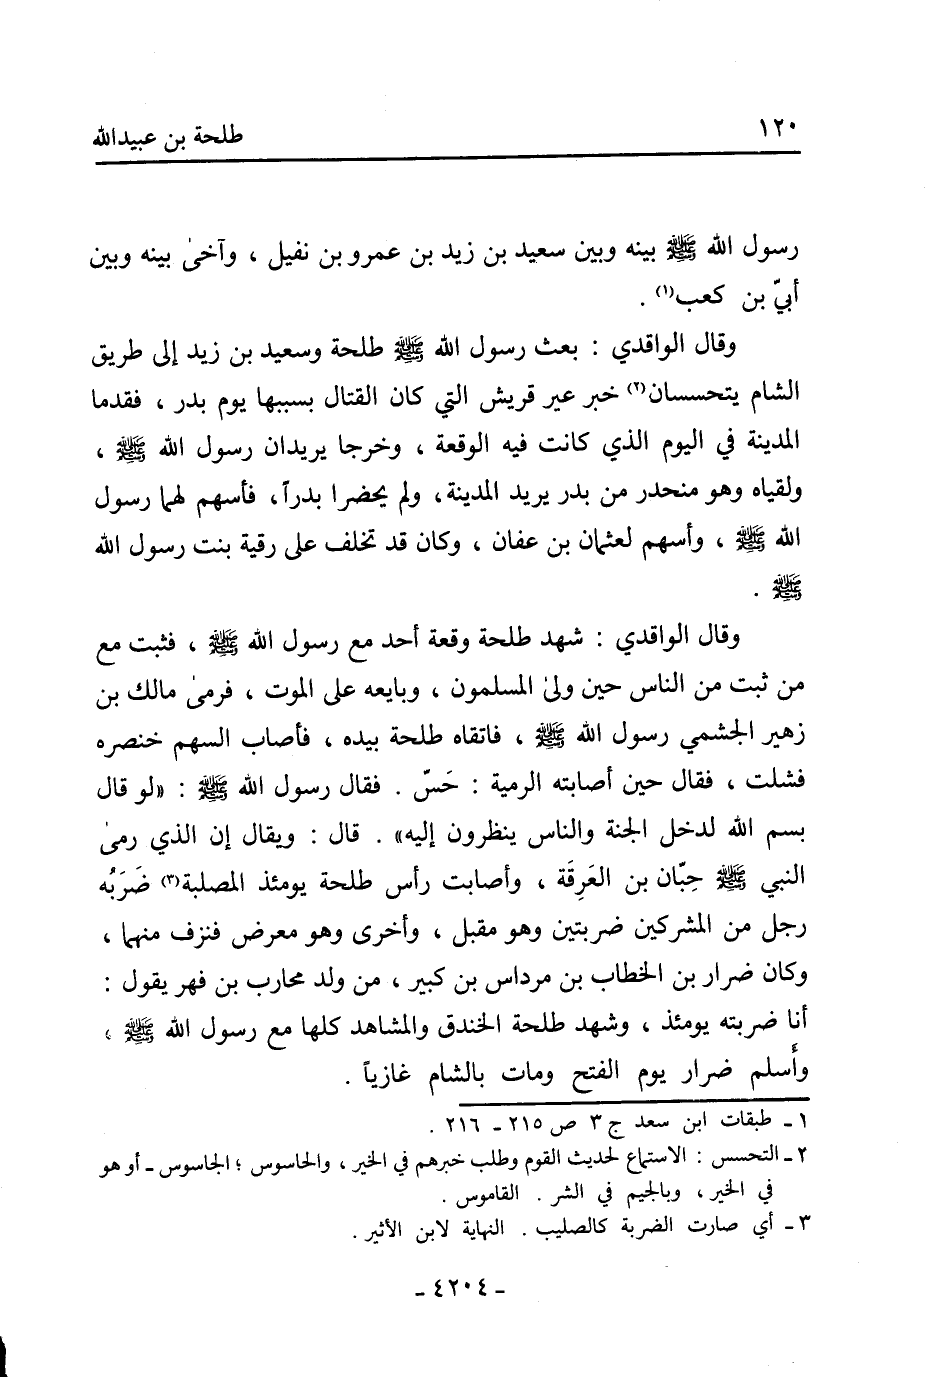 ١٢٠
طلحة بن عبيدالله
رسول الله ﷺ بينه وبين سعيد بن زيد بن عمرو بن نفيل ، وآخىٰ بينه وبين
أبيّ بن كعب(١) .
وقال الواقدي : بعث رسول الله ﷺ طلحة وسعيد بن زيد إلى طريق
الشام يتحسسان(٢) خبر عير قريش التي كان القتال بسببها يوم بدر ، فقدما
المدينة في اليوم الذي كانت فيه الوقعة ، وخرجا يريدان رسول الله ﷺ ،
ولقياه وهو منحدر من بدر يريد المدينة، ولم يحضرا بدرآ، فأسهم لهما رسول
الله ﷺ ، وأسهم لعثمان بن عفان ، وكان قد تخلف على رقية بنت رسول الله
ﷺ .
وقال الواقدي : شهد طلحة وقعة أحد مع رسول الله ﷺ ، فثبت مع
من ثبت من الناس حين ولىٰ المسلمون ، وبايعه على الموت ، فرمىٰ مالك بن
زهير الجشمي رسول الله ﷺ ، فاتقاه طلحة بيده ، فأصاب السهم خنصره
فشلت ، فقال حين أصابته الرمية : حَسّ . فقال رسول الله ﷺ : «لو قال
بسم الله لدخل الجنة والناس ينظرون إليه» . قال : ويقال إن الذي رمىٰ
النبي ﷺ حِبّان بن العَرِقَة ، وأصابت رأس طلحة يومئذ المصلبة(٣) ضَرَبُه
رجل من المشركين ضربتين وهو مقبل ، وأخرى وهو معرض فنزف منهما ،
وكان ضرار بن الخطاب بن مرداس بن كبير ، من ولد محارب بن فهر يقول :
أنا ضربته يومئذ ، وشهد طلحة الخندق والمشاهد كلها مع رسول الله ﷺ ،
وأسلم ضرار يوم الفتح ومات بالشام غازياً .
١ ـ طبقات ابن سعد ج ٣ ص ٢١٥ ـ ٢١٦ .
٢ ـ التحسس : الاستماع لحديث القوم وطلب خبرهم في الخير ، والحاسوس ؛ الجاسوس ـ أو هو
في الخير ، وبالجيم في الشر . القاموس .
٣ ـ أي صارت الضربة كالصليب . النهاية لابن الأثير .
ـ ٤٢٠٤ ـ